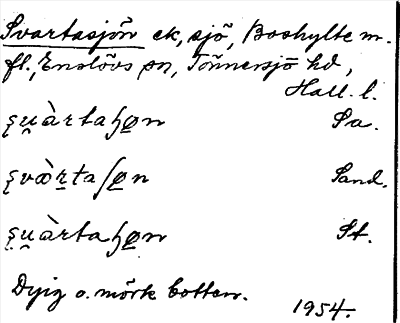 Svartasjön ek, sjö, Boshylte m.
fl., Enslövs sn, Tönnersjö hd,
Hall. l.
şu̯àrtaɧøn Sa.
şvæ̀rtaʃøn Sand.
şu̯àrtaɧøn St.
Dyig o. mörk botten.
1954.